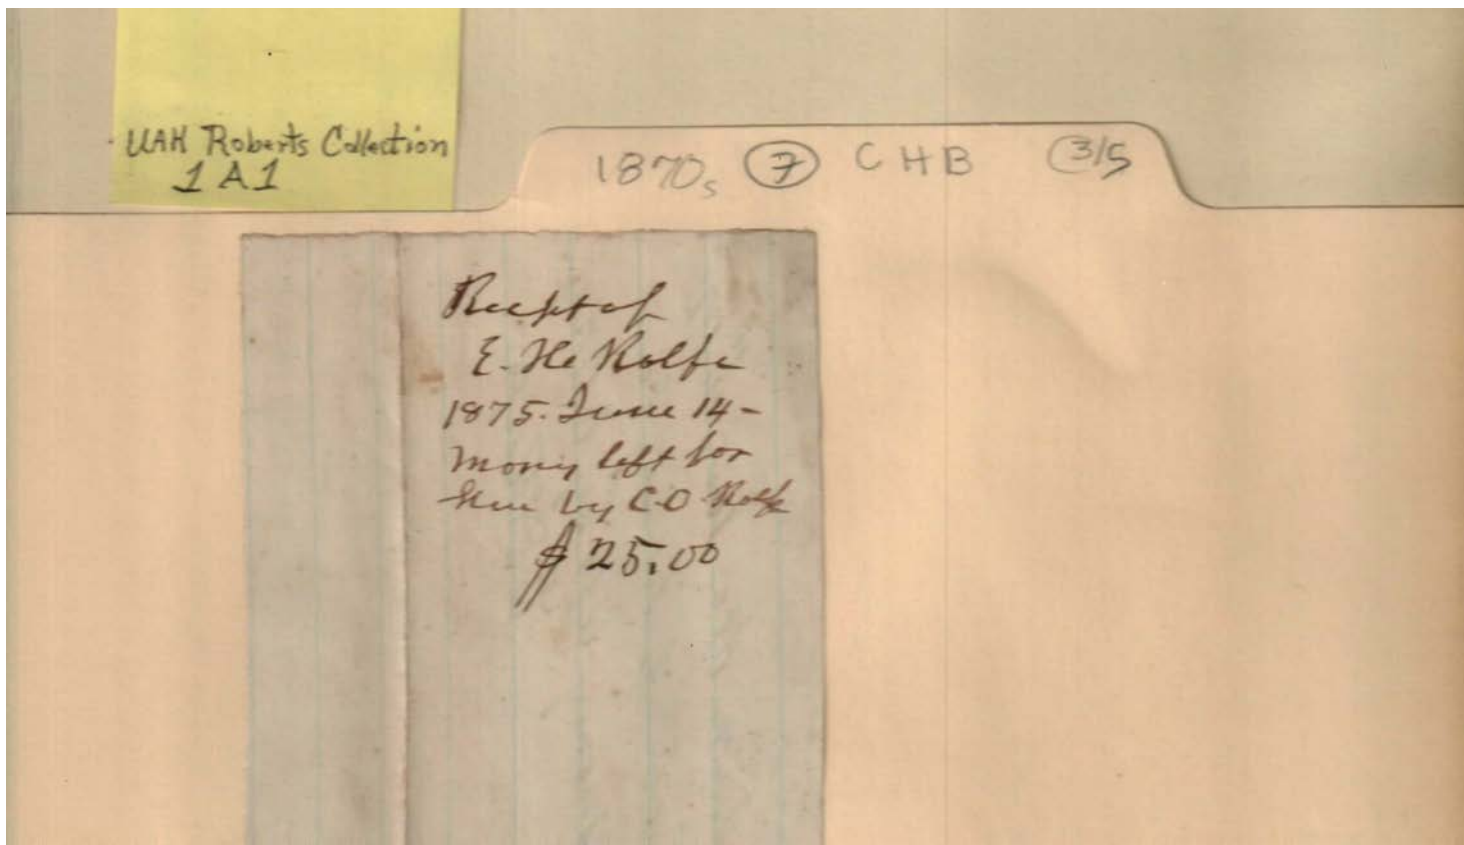 UAH Roberts Collection
1A1
1870s 7 CHB 3/5
Recpt of
E. H. Rolfe
1875. June 14 -
Mony left for
him by C. O. Rolfe
$25.00